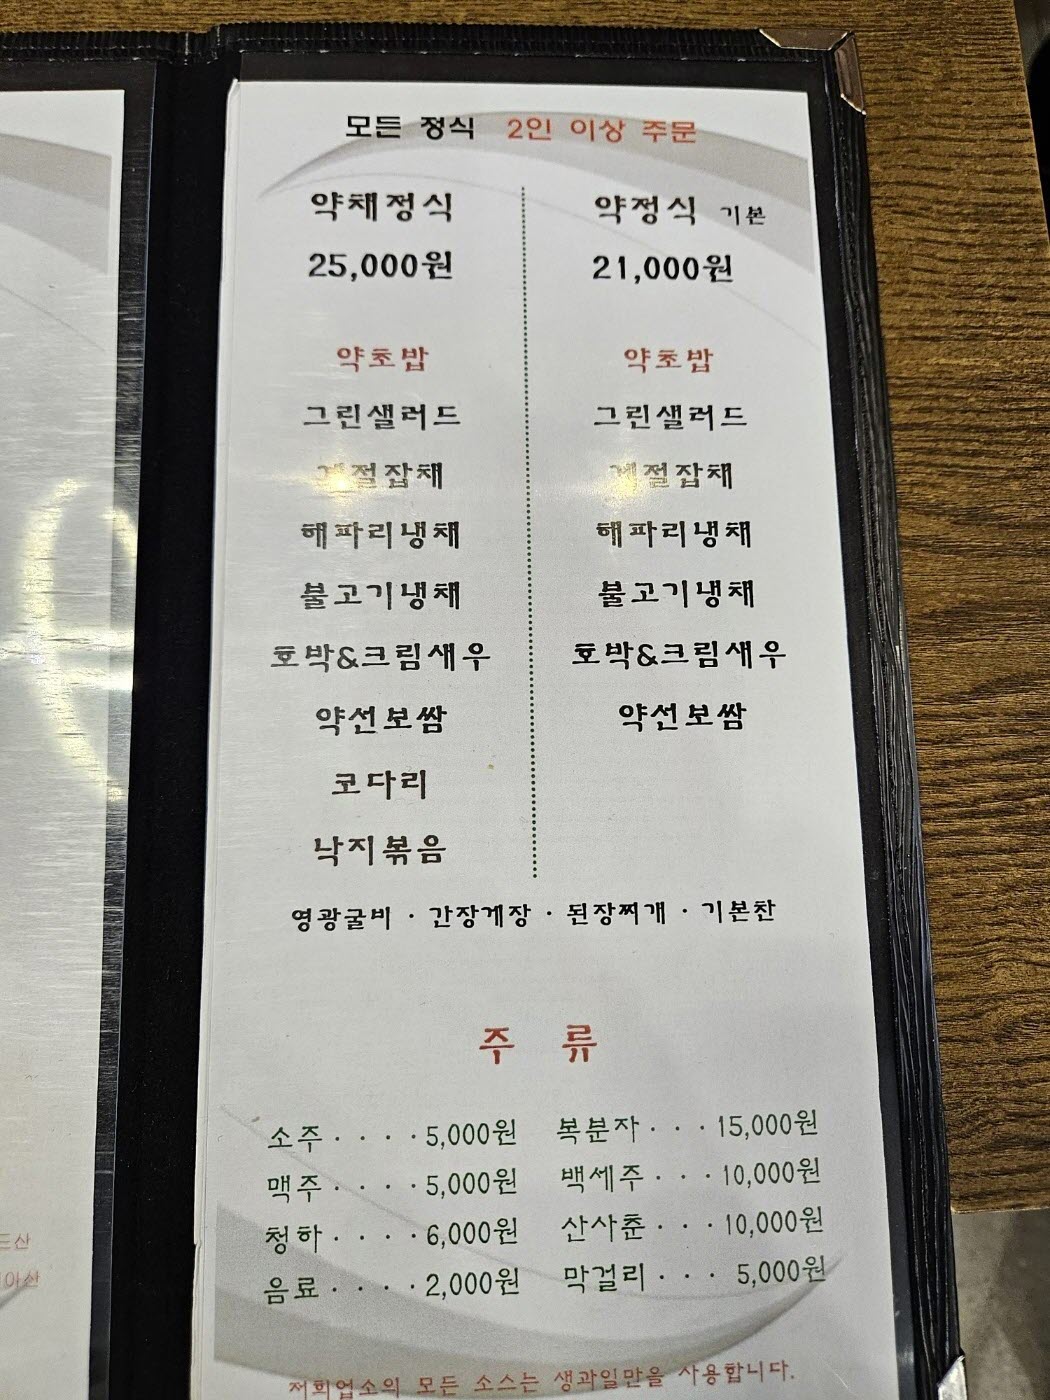 모든 정식 2인 이상 주문
약채정식
25,000원
약초밥
그린샐러드
계절잡채
해파리냉채
불고기냉채
호박&크림새우
약선보쌈
코다리
낙지볶음
약정식 기본
21,000원
약초밥
그린샐러드
계절잡채
해파리냉채
불고기냉채
호박&크림새우
약선보쌈
영광굴비 · 간장게장 · 된장찌개 · 기본찬
주 류
소주 · · · · 5,000원
맥주 · · · · 5,000원
청하 · · · · 6,000원
음료 · · · · 2,000원
복분자 · · · 15,000원
백세주 · · · 10,000원
산사춘 · · · 10,000원
막걸리 · · · 5,000원
저희업소의 모든 소스는 생과일만을 사용합니다.